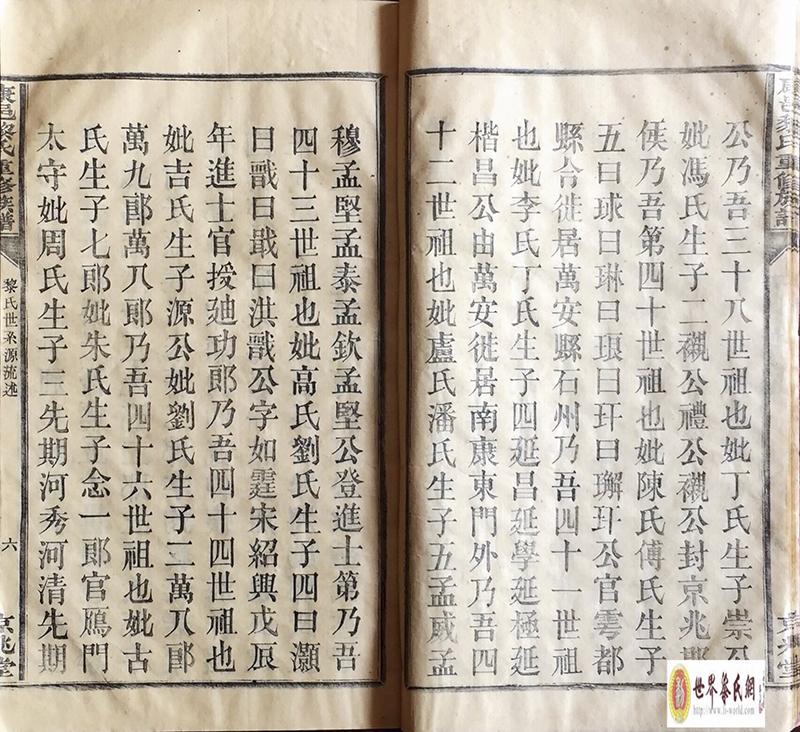 公乃吾三十八世祖也妣丁氏生子崇公
妣馮氏生子二襯公禮公襯公封京兆郡
侯乃吾第四十世祖也妣陳氏傅氏生子
五曰球曰琳曰琅曰玕曰㺔玕公官雩都
縣令徙居萬安縣石州乃吾四十一世祖
也妣李氏丁氏生子四延昌延學延極延
楷昌公由萬安徙居南康東門外乃吾四
十二世祖也妣盧氏潘氏生子五孟威孟
穆孟堅孟泰孟欽孟堅公登進士第乃吾
四十三世祖也妣高氏劉氏生子四曰灝
曰戩曰戢曰洪戩公字如霆宋紹興戊辰
年進士官授廸功郎乃吾四十四世祖也
妣吉氏生子源公妣劉氏生子二萬八郎
萬九郎萬八郎乃吾四十六世祖也妣古
氏生子七郎妣朱氏生子念一郎官鴈門
太守妣周氏生子三先期河秀河清先期
康邑黎氏重修族譜
黎氏世系源流述
六
京兆堂
康邑黎氏重修族譜
京兆堂
世界黎氏網
http://www.li-world.com